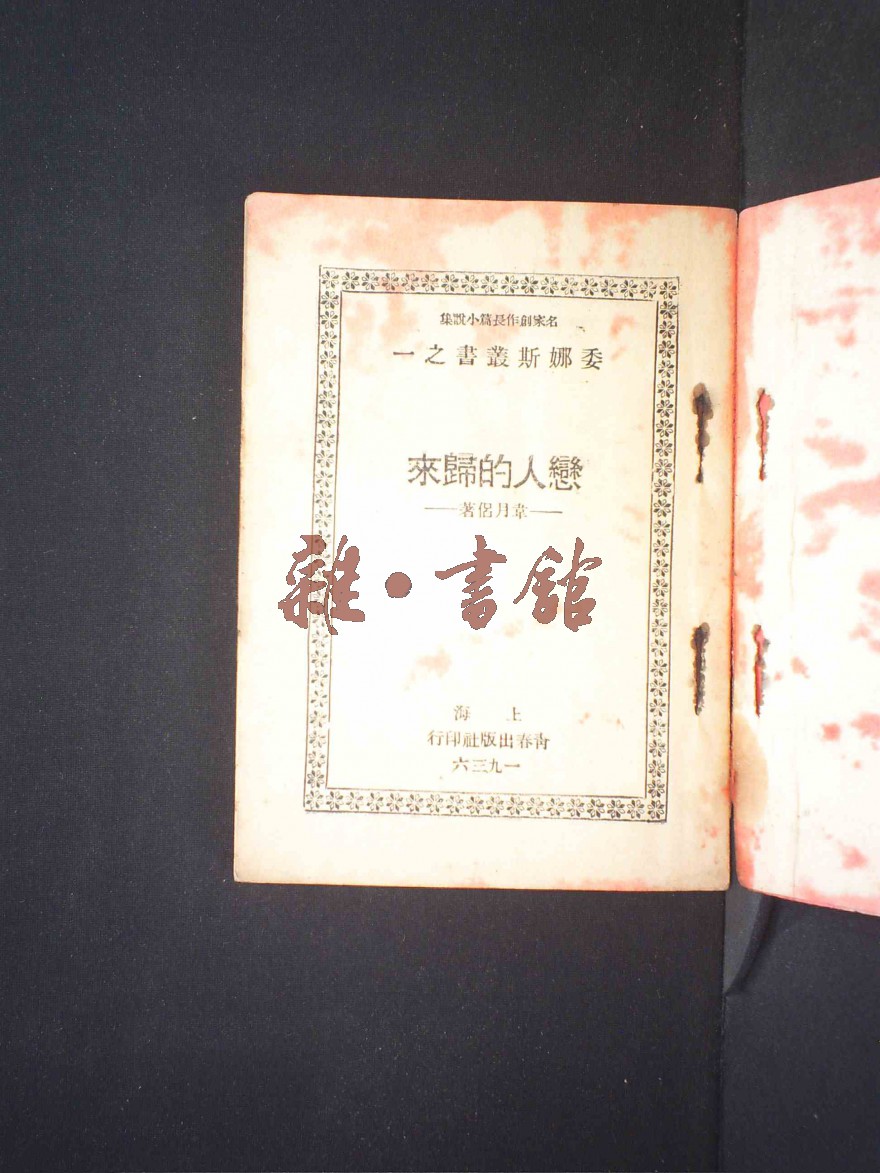 名家創作長篇小說集
委娜斯叢書之一
戀人的歸來
——韋月侶著——
雜·書館
上海
青春出版社印行
一九三六